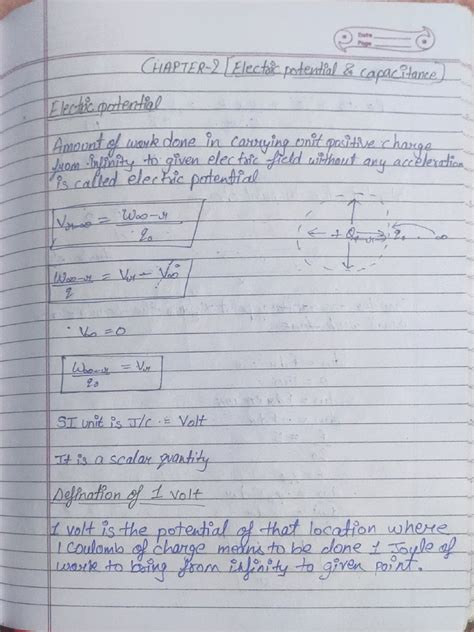 Date
Page
CHAPTER-2 [Electric potential & capacitance]
Electric potential
Amount of work done in carrying unit positive charge
from infinity to given electric field without any acceleration
is called electric potential
V = W∞-r / q₀
+ Q r q₀ ∞
W∞-r / q = Vr - V∞
∵ V∞ = 0
W∞-r / q₀ = Vr
SI unit is J/C = Volt
It is a scalar quantity
Definition of 1 volt
1 volt is the potential of that location where
1 Coulomb of charge to be done 1 Joyle of
work to being from infinity to given point.